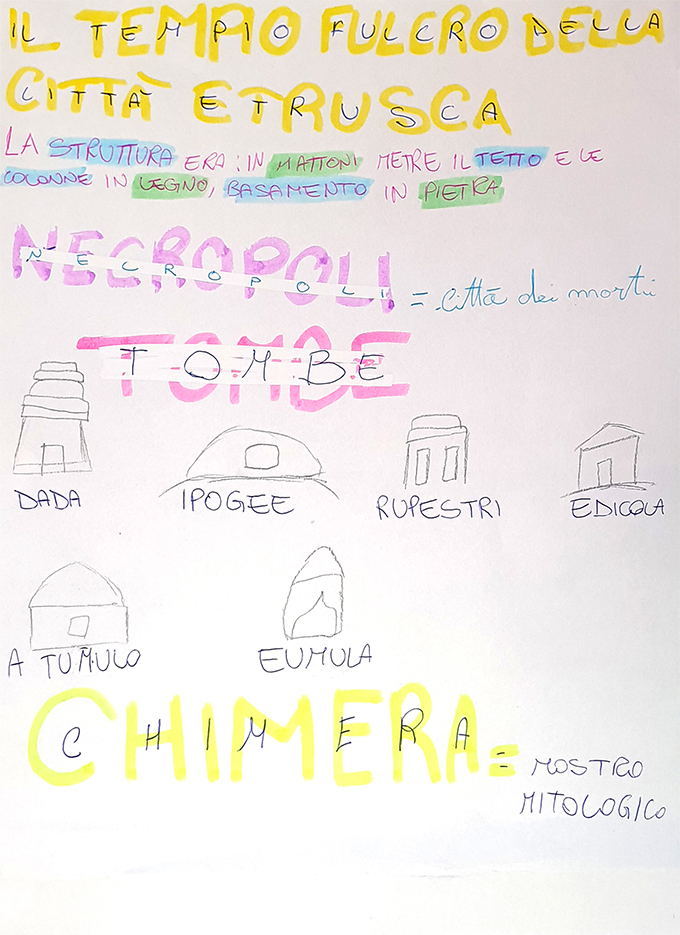 IL TEMPIO FULCRO DELLA
CITTÀ ETRUSCA
LA STRUTTURA ERA: IN MATTONI METRE IL TETTO E LE
COLONNE IN LEGNO, BASAMENTO IN PIETRA
NECROPOLI = città dei morti
TOMBE
DADA IPOGEE RUPESTRI EDICOLA
A TUMULO EUMULA
CHIMERA = MOSTRO
MITOLOGICO